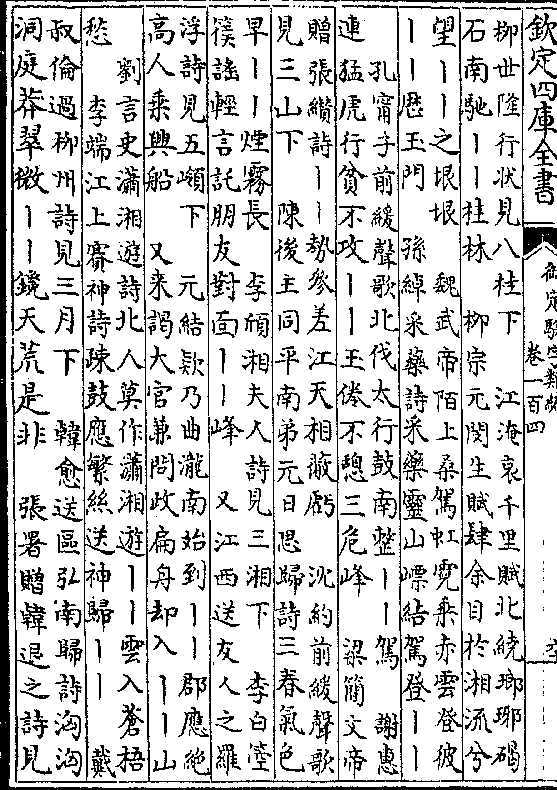 欽定四庫全書
御定駢字類編
卷一百四
柳世隆行狀見八桂下　江淹哀千里賦北繞瑯琊碣
石南馳丨丨桂林　柳宗元閔生賦肆余目於湘流兮
望丨丨之垠垠　魏武帝陌上桑駕虹霓乘赤雲登彼
丨丨歴玉門　孫綽采藥詩采藥靈山嶛結駕登丨丨
孔甯子前緩聲歌北伐太行鼓南整丨丨駕　謝惠
連猛虎行貧不攻丨丨王倦不憩三危峰　梁簡文帝
贈張纘詩丨丨勢參差江天相蔽虧　沈約前緩聲歌
見三山下　陳後主同平南弟元日思歸詩三春氣色
早丨丨煙霧長　李頎湘夫人詩見三湘下　李白箜
篌謡輕言託朋友對面丨丨峰　又江西送友人之羅
浮詩見五嶺下　元結欸乃曲瀧南始到丨丨郡應絶
高人乘興船　又来謁大官兼問政扁舟却入丨丨山
劉言史瀟湘遊詩北人莫作瀟湘遊丨丨雲入蒼梧
愁　李端江上賽神詩疎鼓應繁絲送神歸丨丨　戴
叔倫過柳州詩見三月下　韓愈送區弘南歸詩洶洶
洞庭莽翠微丨丨鏡天荒是非　張署贈韓退之詩見